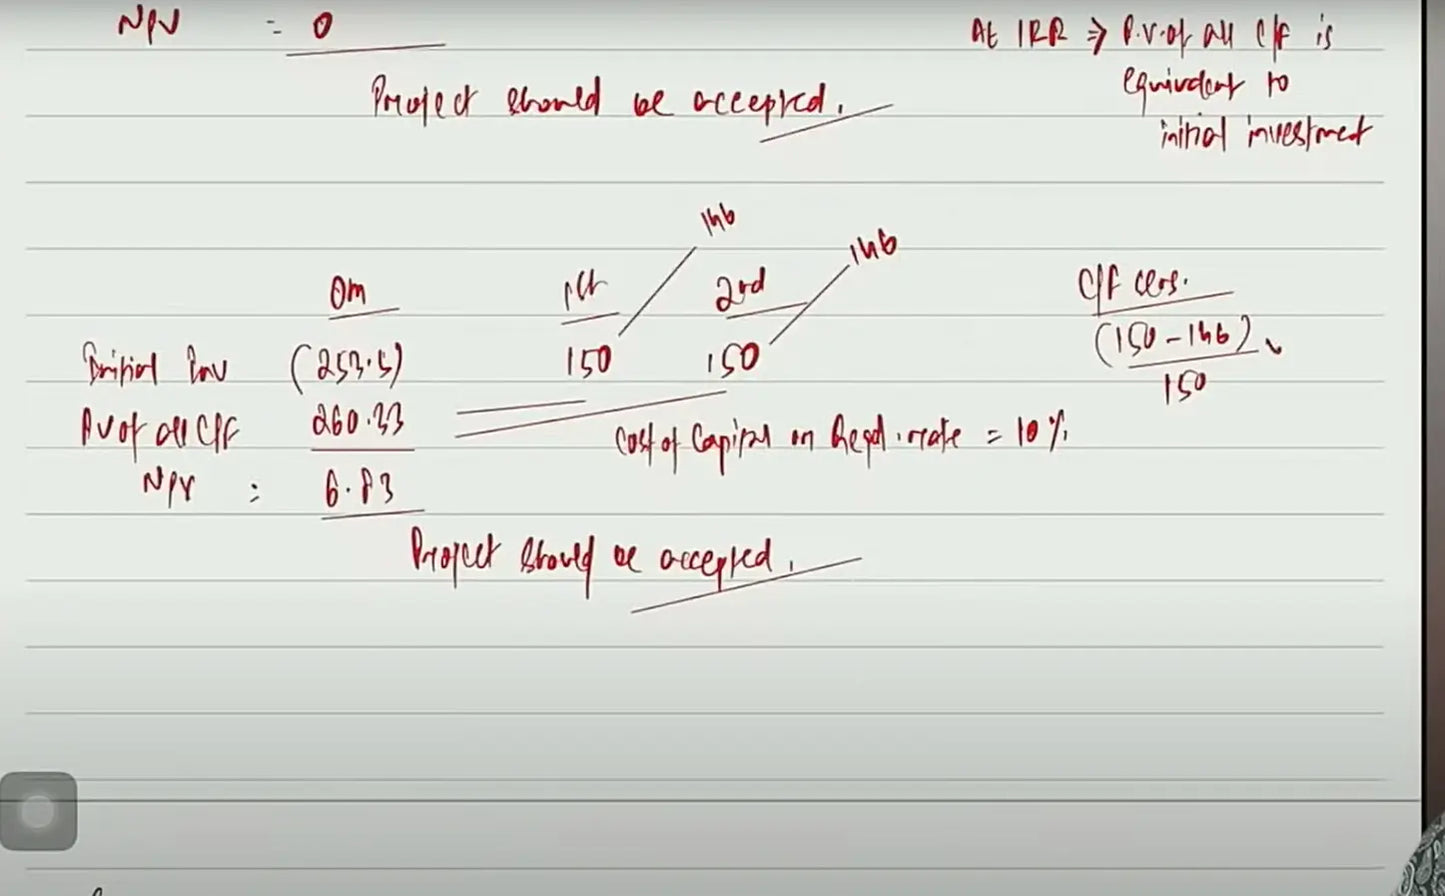 NPV = 0
Project should be accepted.
At IRR ⇒ P.V. of all C/F is
equivalent to
initial investment
146
146
0m 1st 2nd
C/F cens.
Initial Inv (253.5) 150 150
(150 - 146)
150
PV of all C/F 260.33
Cost of Capital or Reqd. rate = 10%
NPV : 6.83
Project should be accepted.